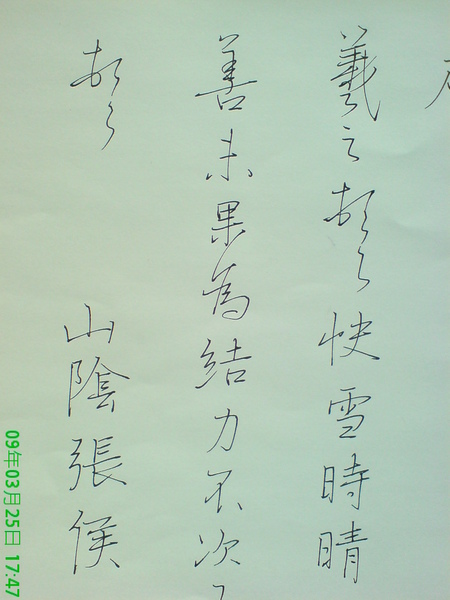 羲之頓首快雪時晴
善未果為結力不次
頓首
山陰張侯
09年03月25日 17:47